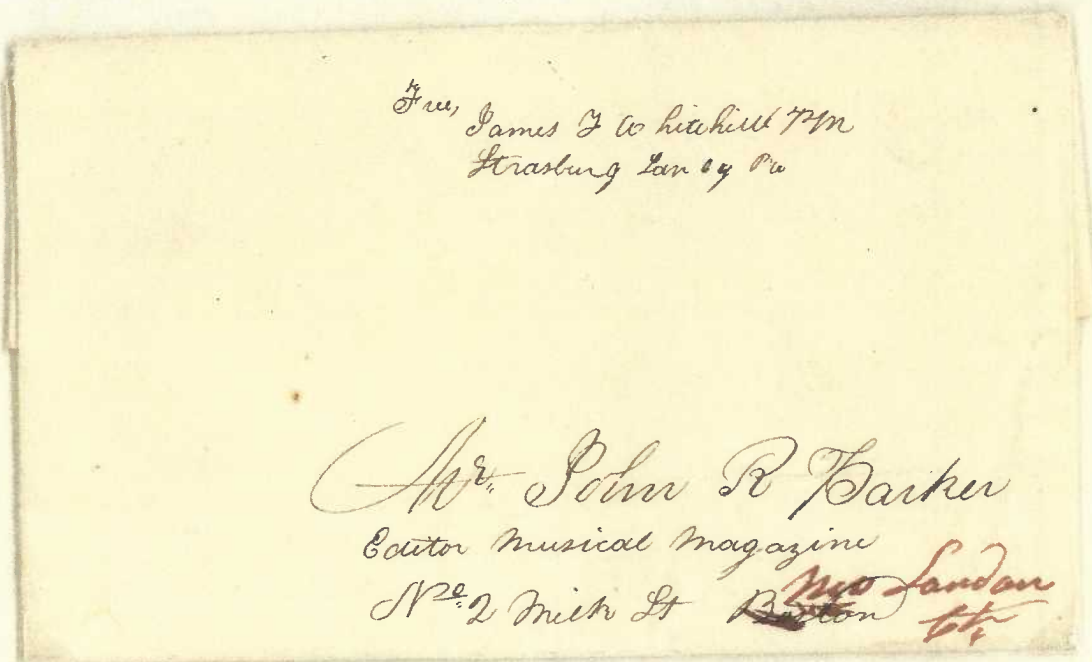 Free, James F Whitehill PM
Strasburg Lan Cy Pa
Mr. John R Parker
Editor Musical Magazine
No. 2 Milk St Boston
New London
Ct.